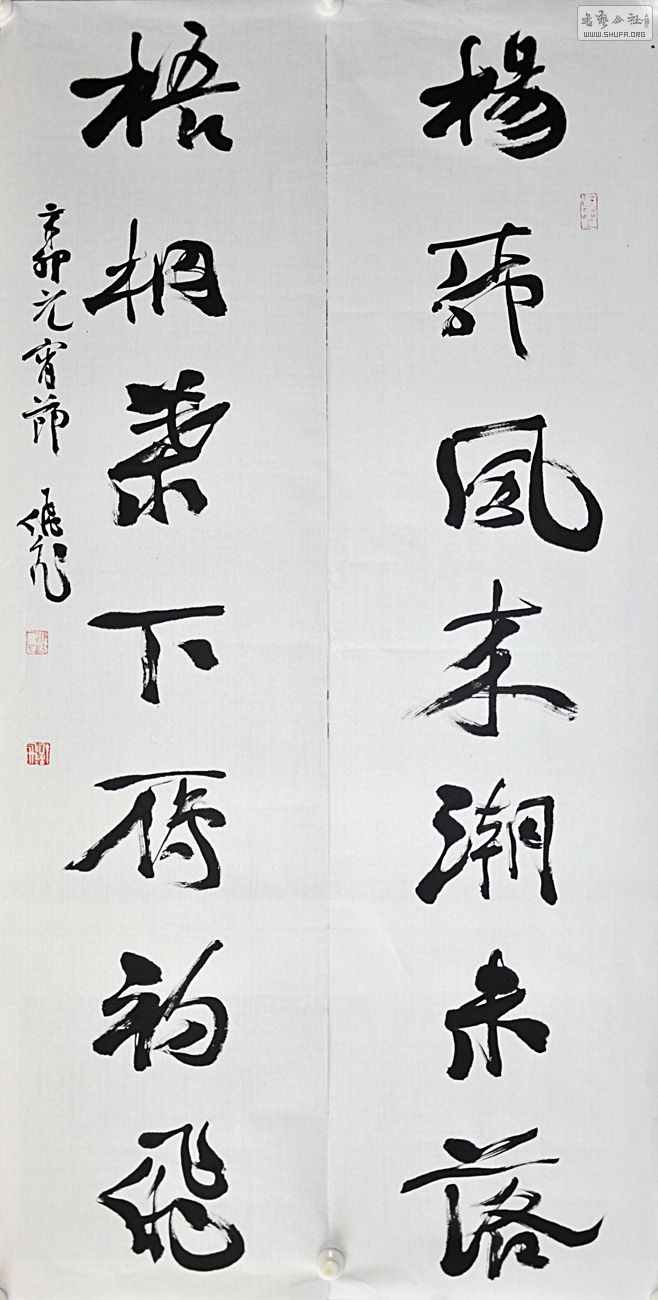 楊柳風来潮未落
梧桐葉下鴈初飛
辛卯元宵節
書藝公社
WWW.SHUFA.ORG